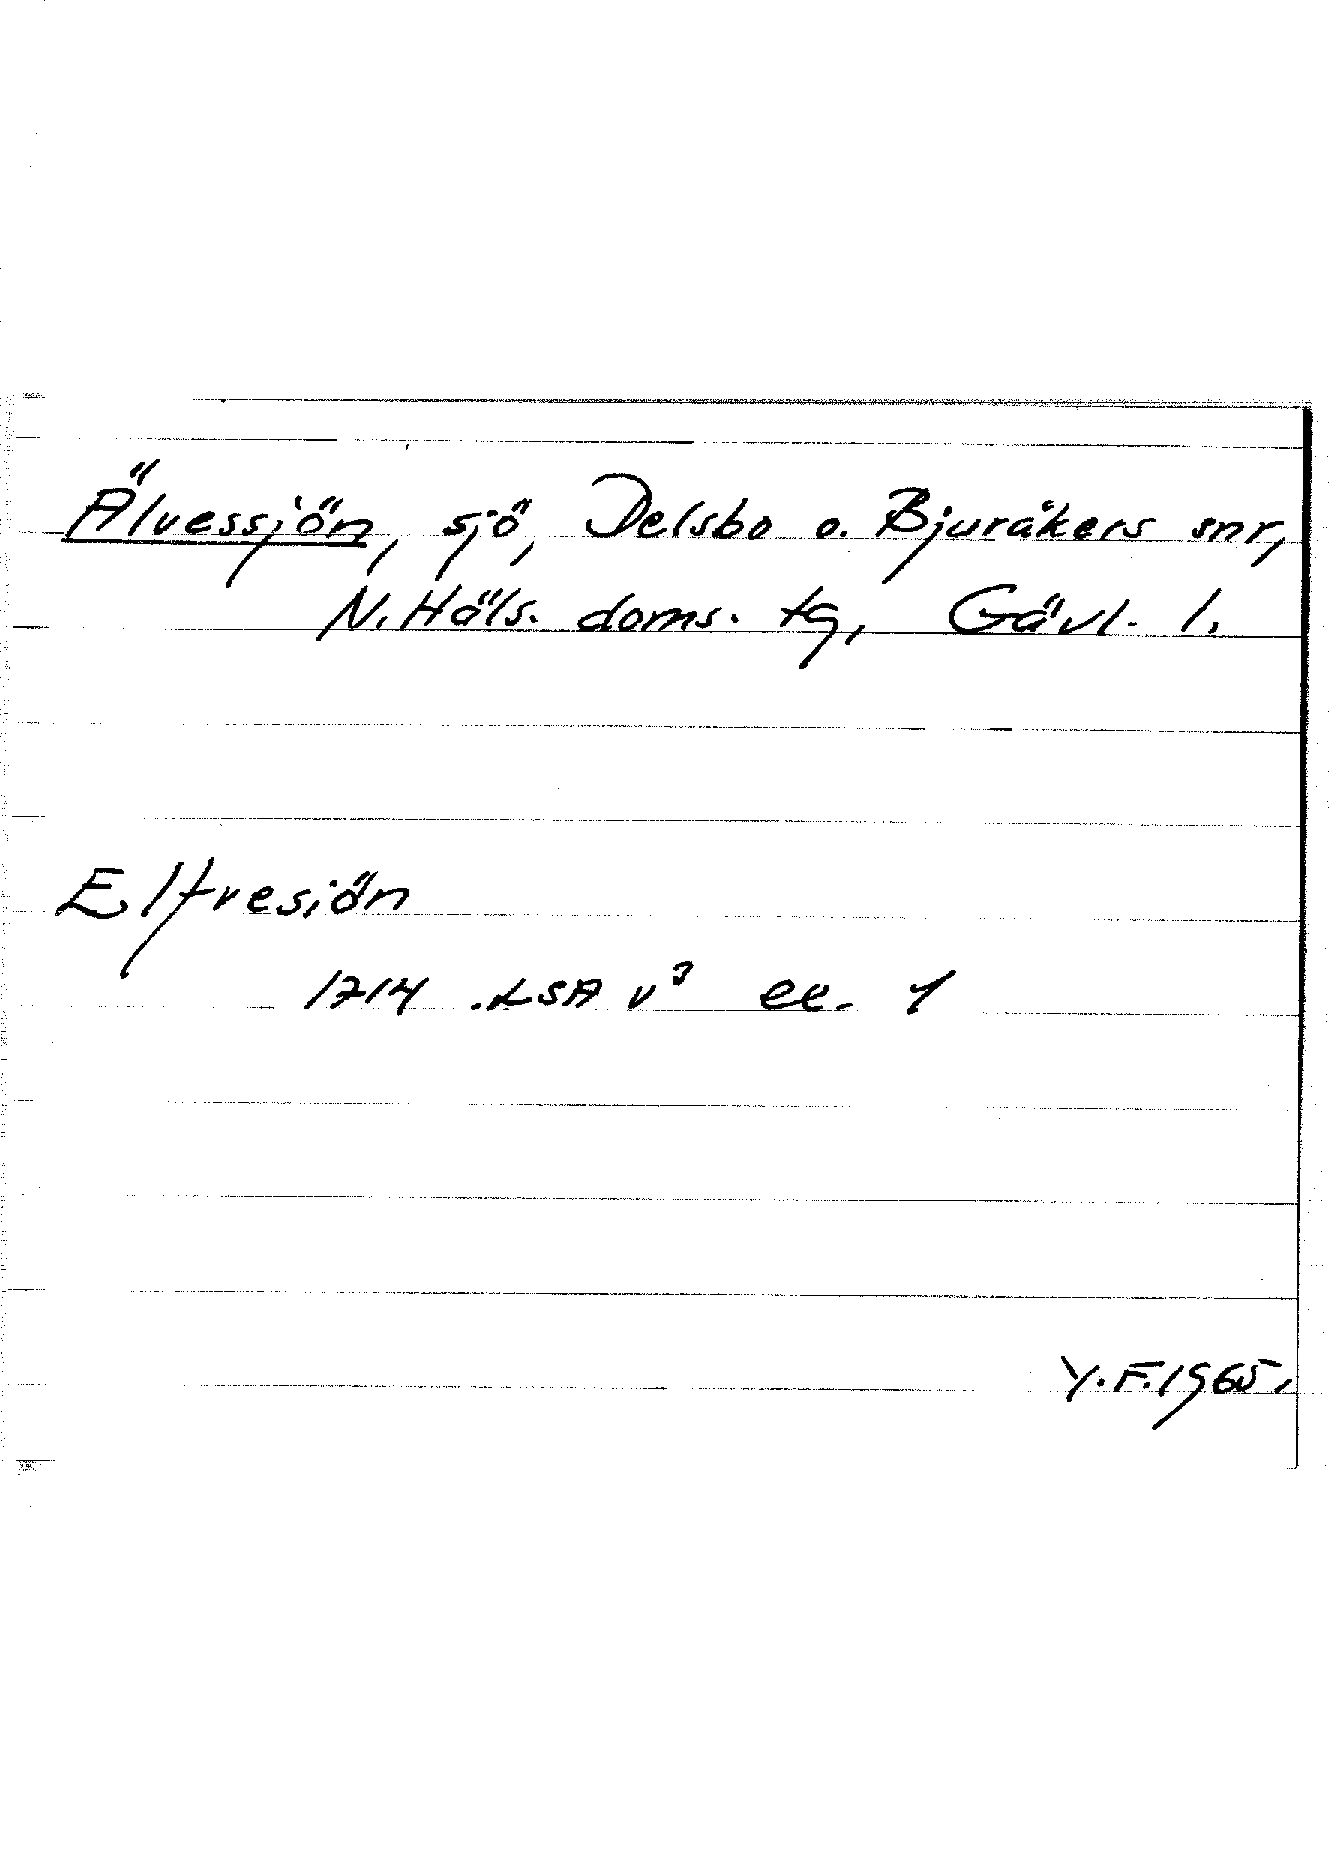 Älvessjön, sjö, Delsbo o. Bjuråkers snr,
N. Häls. doms. tg, Gävl. l.
Elfvesiön
1714 LSA v³ ee. 1
Y.F. 1965.